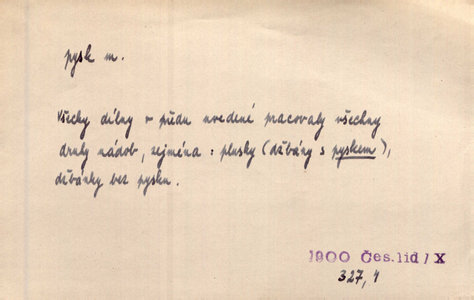 pysk m.
Všecky dílny v půdu uvedené pracovaly všechny
druhy nádob, zejména: plusky (džbány s pyskem),
džbánky bez pysku.
1900 Čes.lid / X
327, 1